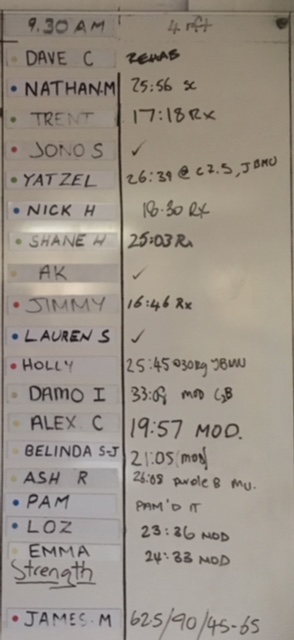 9.30 AM 4 rft
DAVE C REHAB
NATHAN.M 25:56 SC
TRENT 17:18 Rx
JONO S ✓
YATZEL 26:39 @ 62.5, JBMU
NICK H 18.30 RX
SHANE H 25:03 Rx
AK ✓
JIMMY 16:46 Rx
LAUREN S ✓
HOLLY 25:45 @30kg JBMU
DAMO I MOD GB
ALEX C 19:57 MOD.
BELINDA S-J 21:05 (mod)
ASH R 26:08 purple B MU.
PAM PAM'D IT
LOZ 23:36 MOD
EMMA 24:33 MOD
Strength
JAMES.M 625/90/45-65